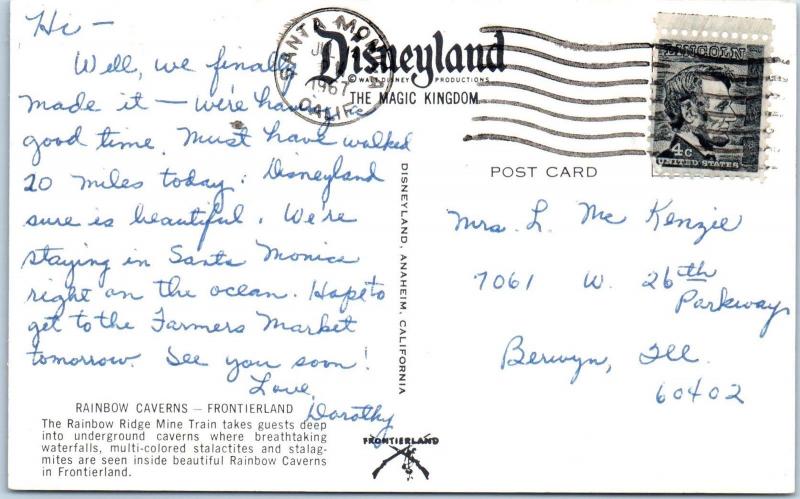 Hi —
Well, we finally
made it — we're having
good time. Must have walked
20 miles today. Disneyland
sure is beautiful. We're
staying in Santa Monica
right on the ocean. Hope to
get to the Farmers Market
tomorrow. See you soon!
Love,
Dorothy
RAINBOW CAVERNS — FRONTIERLAND
The Rainbow Ridge Mine Train takes guests deep
into underground caverns where breathtaking
waterfalls, multi-colored stalactites and stalag-
mites are seen inside beautiful Rainbow Caverns
in Frontierland.
SANTA MONICA
1967
CALIF
Disneyland
© WALT DISNEY PRODUCTIONS
THE MAGIC KINGDOM
DISNEYLAND, ANAHEIM, CALIFORNIA
FRONTIERLAND
LINCOLN
4c
UNITED STATES
POST CARD
Mrs. L. Mc Kenzie
7061 W. 26th
Parkway
Berwyn, Ill.
60402